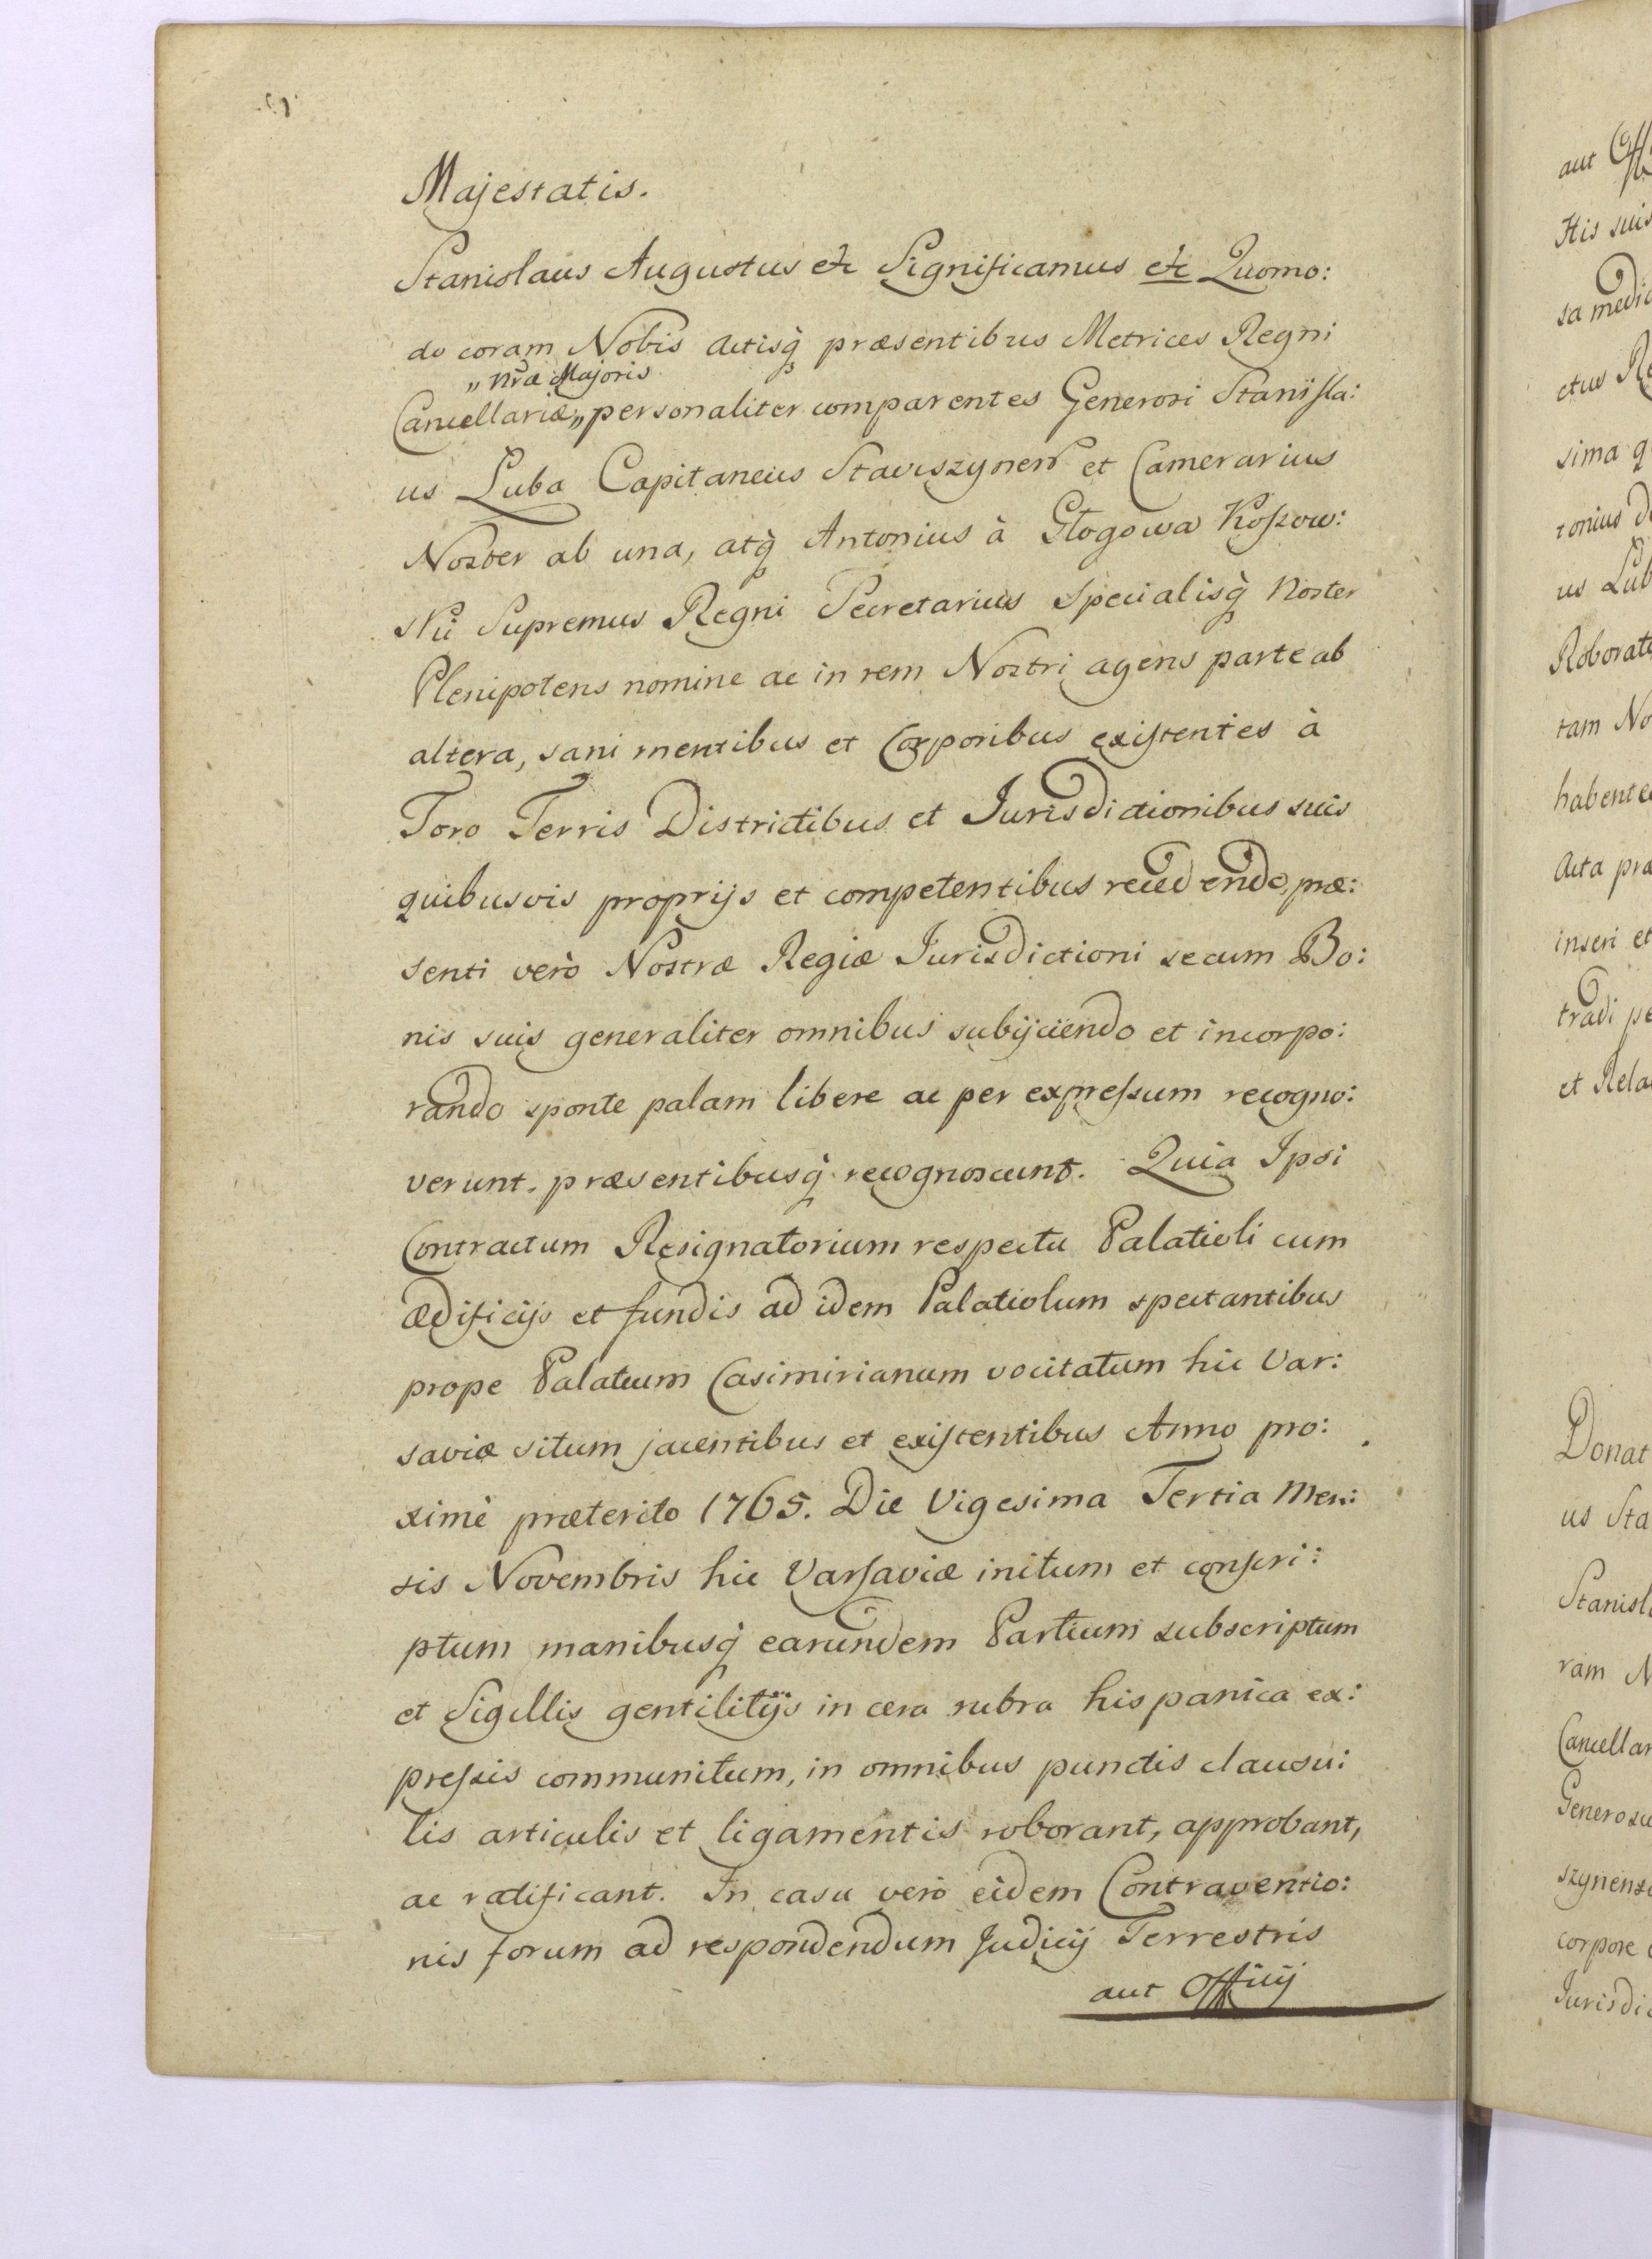 Majestatis.
Stanislaus Augustus etc Significamus etc Quomo:
do coram Nobis Actisq̀ præsentibus Metrices Regni
„ nr̃æ Majoris
Cancellariæ „ personaliter comparentes Generosi Stanisla:
us Luba Capitaneus Stawiszynen̄ et Camerarius
Noster ab una, atq̀ Antonius à Głogowa Kossow:
ski Supremus Regni Secretarius Specialisq̀ Noster
Plenipotens nomine ac in rem Nostri agens parte ab
altera, sani mentibus et Corporibus existentes à
Foro Terris Districtibus et Jurisdictionibus suis
quibusvis proprijs et competentibus recedendo, præ:
senti verò Nostræ Regiæ Jurisdictioni secum Bo:
nis suis generaliter omnibus subijciendo et incorpo:
rando sponte palam libere ac per expressum recogno:
verunt. præsentibusq̀ recognoscunt. Quia Ipsi
Contractum Resignatorium respectu Palatioli cum
ædificijs et fundis ad idem Palatiolum spectantibus
prope Palatium Casimirianum vocitatum hic Var:
saviæ situm jacentibus et existentibus Anno pro:
ximè præterito 1765. Die Vigesima Tertia Men:
sis Novembris hic Varsaviæ initum et conscri:
ptum manibusq̀ earundem Partium subscriptum
et Sigillis gentilitijs in cera rubra hispanica ex:
pressis communitum, in omnibus punctis clausu:
lis articulis et ligamentis roborant, approbant,
ac ratificant. In casu verò eidem Contraventio:
nis forum ad respondendum Judicij Terrestris
aut Officij
aut Offi
His suis
sa medic
ctus Re
sima q
tonius d
us Lub
Roborat
tam No
habente
Acta præ
inseri et
tradi pe
et Rela
Donat
us Sta
Stanisl
ram N
Cancellar
Generosu
szynens
corpore
Jurisdic